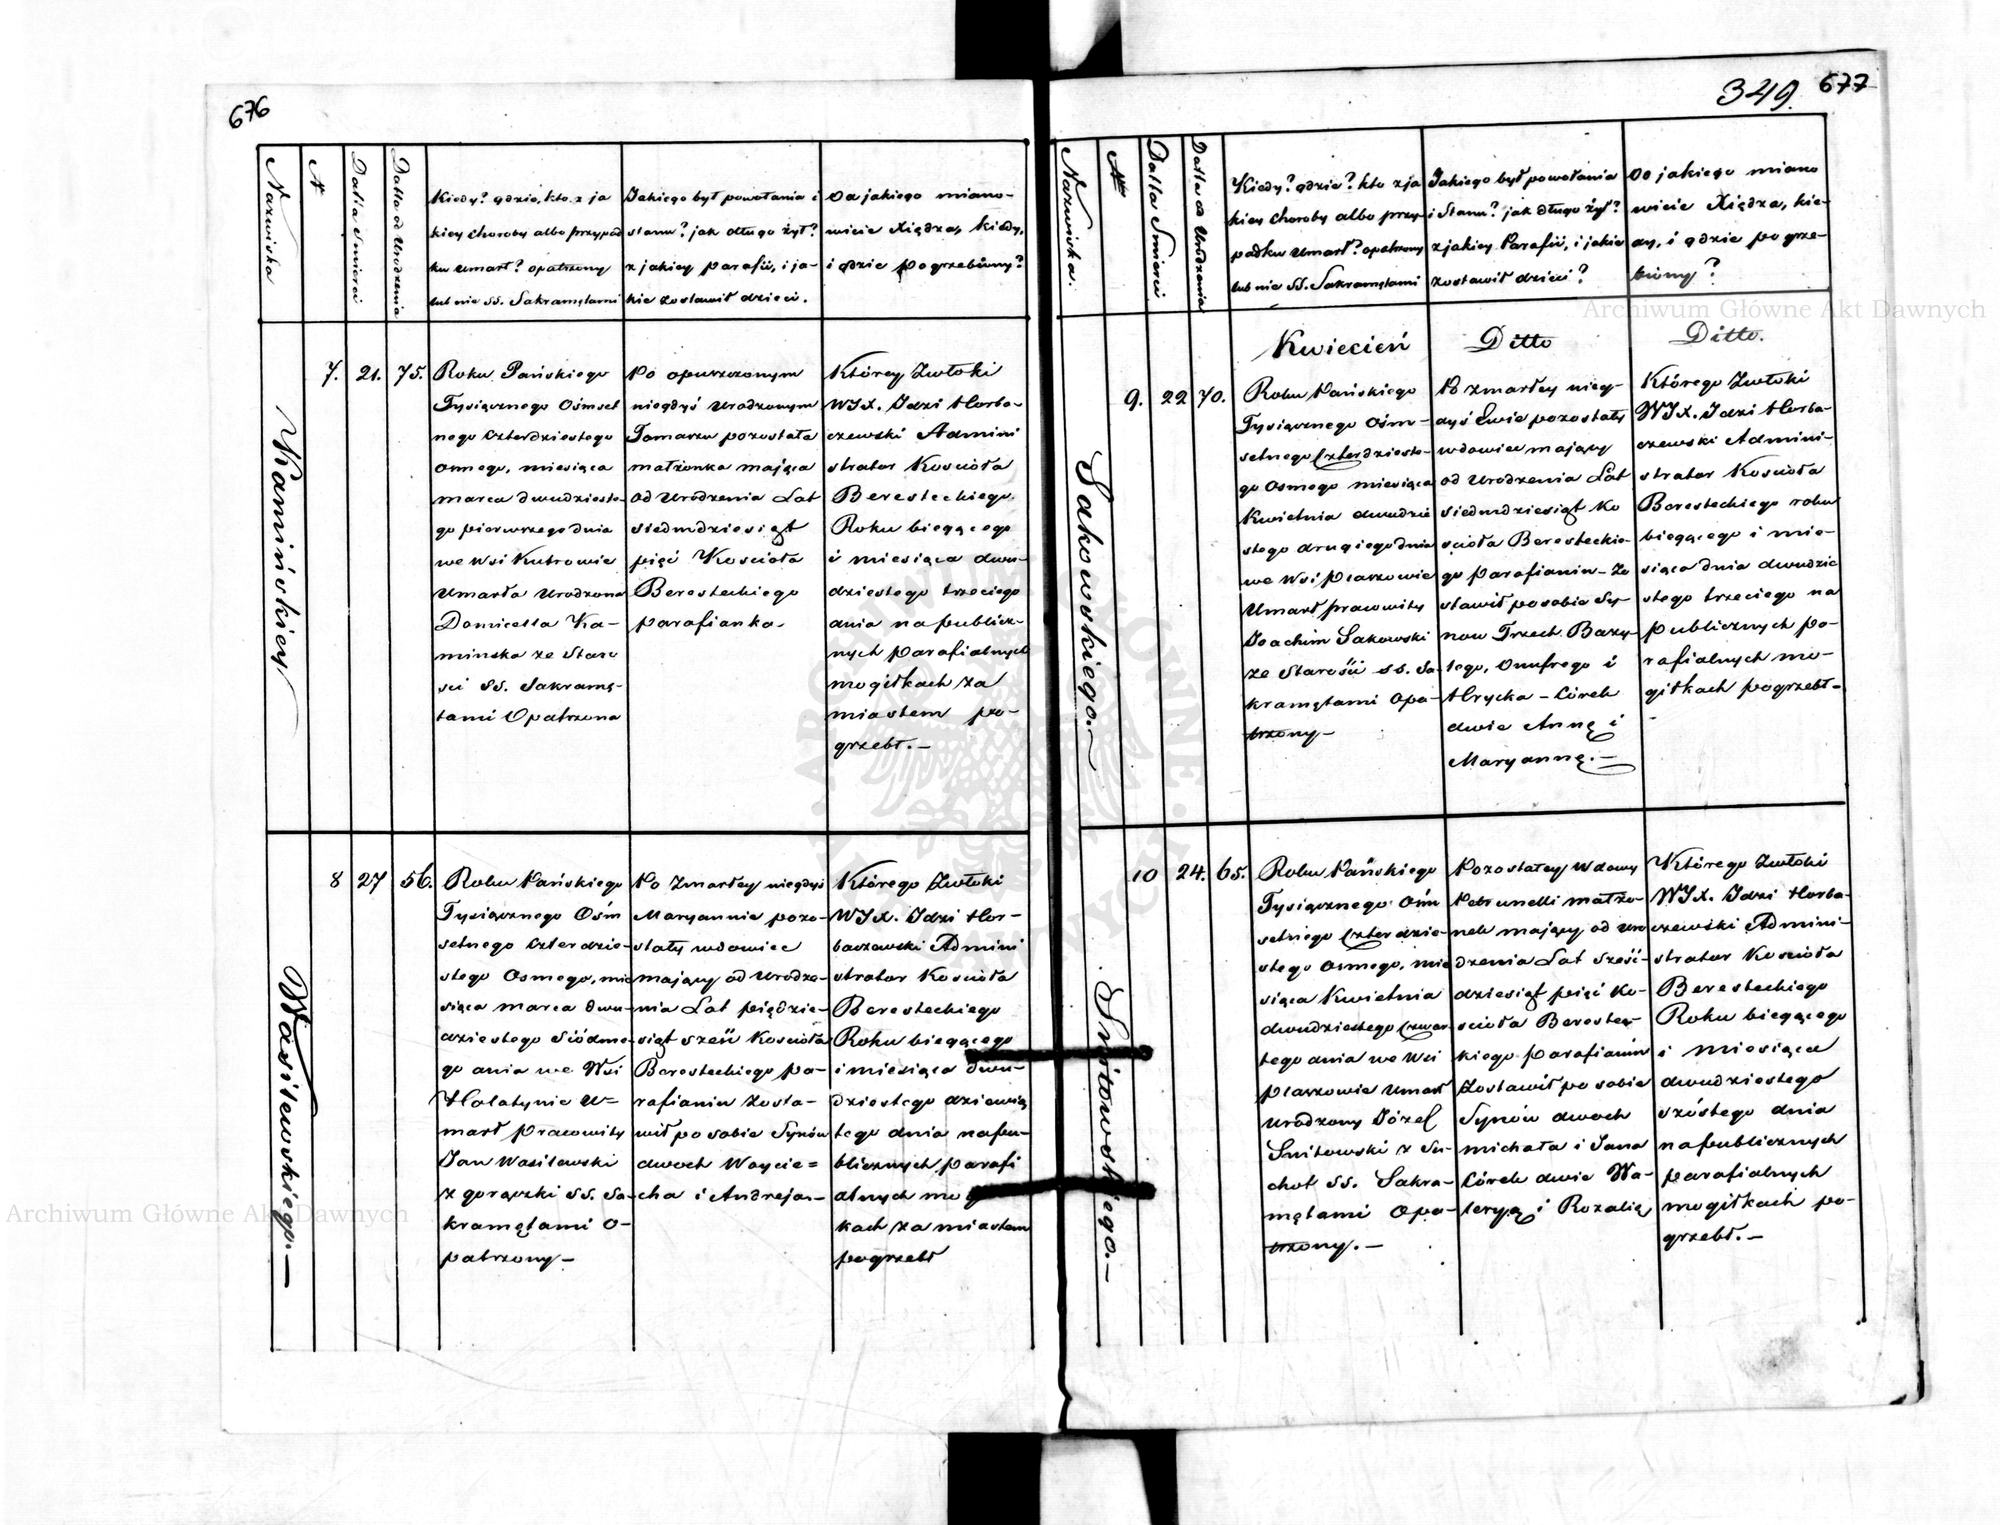 676
Nazwiska
N
Datta Śmierci
Datta od Urodzenia
Kiedy? gdzie, kto z ja
kiey choroby albo przypad
ku umarł? opatrzony
lub nie SS. Sakramętami
Jakiego był powołania i
stanu? jak długo żył?
z jakiey parafii, i ja-
kie zostawił dzieci.
Od jakiego miano-
wicie Xiędza, kiedy,
i gdzie pogrzebiony?
Kamińskiey
7. 21. 75.
Roku Pańskiego
Tysiącznego Ośmset
nego czterdziestego
osmego, miesiąca
marca dwudzieste-
go pierwszego dnia
we wsi Kutrowie
Umarła Urodzona
Domicella Ka-
minska ze Staro
ści SS. Sakramę-
tami Opatrzona
Po opuszczonym
niegdyś Urodzonym
Tomaszu pozostała
małżonka mająca
od Urodzenia Lat
siedmdziesiąt
pięć Kościoła
Beresteckiego
parafianka.
Którey Zwłoki
WJX. Idzi Horba-
czewski Admini
strator Kościoła
Beresteckiego.
Roku biegącego
i miesiąca dwu-
dziestego trzeciego
dnia na publicz-
nych parafialnych
mogiłkach za
miastem po-
grzebł.-
Wasilewskiego.-
8 27 56.
Roku Pańskiego
Tysiącznego Ośm
setnego czterdzie-
stego Osmego, mie
siąca marca dwu-
dziestego siódme-
go dnia we Wsi
Hołatynie U=
marł Pracowity
Jan Wasilewski
z gorączki SS. Sa-
kramętami O-
patrzony-
Po Zmarłey niegdyś
Maryannie pozo-
stały wdowiec
mający od Urodze-
nia Lat pięćdzie-
siąt sześć Kościoła
Beresteckiego pa-
rafianin Zosta-
wił po sobie Synów
dwoch Woycie=
cha i Andreja.-
Którego Zwłoki
WJX. Idzi Hor-
baczewski Admini
strator Kościoła
Beresteckiego
Roku biegącego
i miesiąca dwu-
dziestego dziewią
tego dnia na pu-
blicznych parafi
alnych mogił
kach za miastem
pogrzebł
349. 677
Nazwiska.
N
Datta Śmierci
Datta od Urodzenia
Kiedy? gdzie? kto z ja
kiey choroby albo przy-
padku umarł? opatrzony
lub nie SS. Sakramętami
Jakiego był powołania
i Stanu? jak długo żył?
z jakiey Parafii, i jakie
zostawił dzieci?
Od jakiego miano
wicie Xiędza, kie-
dy, i gdzie pogrze-
biony?
Kwiecień Ditto Ditto.
Sakowskiego.-
9. 22 70.
Roku Pańskiego
Tysiącznego Ośm-
setnego czterdzieste-
go Osmego miesiąca
Kwietnia dwudzie
stego drugiego dnia
we Wsi Plaszowie
Umarł pracowity
Joachim Sakowski
ze Starości SS. Sa-
kramętami Opa-
trzony-
Po zmarłey nieg-
dyś Ewie pozostały
wdowiec mający
od Urodzenia Lat
siedmdziesiąt Ko
ścioła Berestecki-
go Parafianin- Zo
stawił po sobie Sy-
now Trzech Bazy-
lego, Onufrego i
Hrycka - Córek
dwie Annę i
Maryannę.-
Którego Zwłoki
WJX. Idzi Horba-
czewski Admini-
strator Kościoła
Beresteckiego roku
biegącego i mie-
siąca dnia dwudzie
stego trzeciego na
Publicznych pa-
rafialnych mo-
giłkach pogrzebł-
Snitowskiego.-
10 24. 65.
Roku Pańskiego
Tysiącznego Ośm
setnego czterdzie-
stego Osmego, mie
siąca Kwietnia
dwudziestego czwar
tego dnia we Wsi
Plaszowie umarł
Urodzony Józef
Snitowski z Su-
chot SS. Sakra-
mętami Opa-
trzony.-
Pozostałey wdowy
Petrunelli małżo-
nek mający od uro
dzenia Lat sześć-
dziesiąt pięć Ko-
ścioła Berestec-
kiego parafianin
Zostawił po sobie
Synów dwoch
michała i Jana
Córek dwie Wa-
leryą i Rozalią
Którego Zwłoki
WJX. Idzi Horba-
czewski Admini-
strator Kościoła
Beresteckiego
Roku biegącego
i miesiąca
dwudziestego
szóstego dnia
na publicznych
parafialnych
mogiłkach po-
grzebł.-
Archiwum Główne Akt Dawnych
Archiwum Główne Akt Dawnych